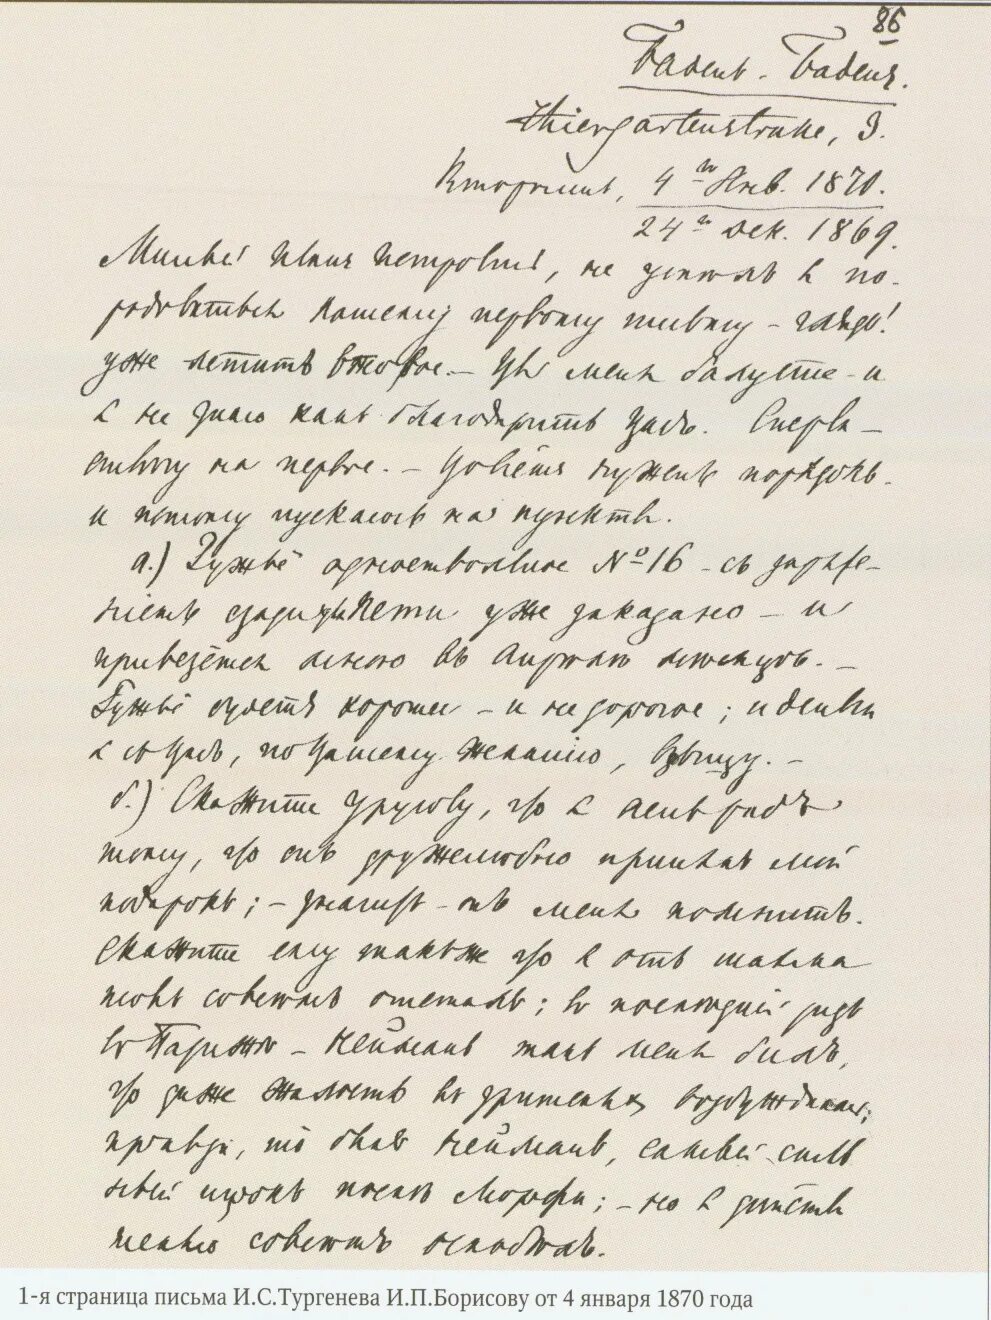 86
Баденъ-Баденъ.
Thiergartenstrasse, 3.
Вторникъ, 4-го Янв. 1870.
24-го Дек. 1869.
Милый Иванъ Петровичъ, не успѣлъ я по-
радоваться Вашему первому письму – глядь!
уже летитъ второе. – Вы меня балуете – и
я не знаю какъ благодарить Васъ. Сперва –
отвѣчу на первое. – Во всёмъ нуженъ порядокъ.
и потому пускаюсь на пункты.
а.) Ружьё одноствольное № 16 – съ заряже-
ніемъ сзади для Пети уже заказано – и
привезётся мною въ Апрѣлѣ мѣсяцѣ. –
Ружьё будетъ хорошее – и не дорогое; и деньги
я съ Васъ, по Вашему желанію, взыщу. –
б.) Скажите Урусову, что я очень радъ
тому, что онъ дружелюбно принялъ мой
подарокъ; – значитъ – онъ меня помнитъ.
Скажите ему также что я отъ шахма
товъ совсѣмъ отсталъ; въ послѣдній разъ
въ Парижѣ – Нейманъ такъ меня билъ,
что даже жалость въ зрителяхъ возбуждалъ;
правда, то былъ Нейманъ, самый силь
ный игрокъ послѣ Морфи; – но я дѣйстви
тельно совсѣмъ ослабѣлъ.
1-я страница письма И.С.Тургенева И.П.Борисову от 4 января 1870 года